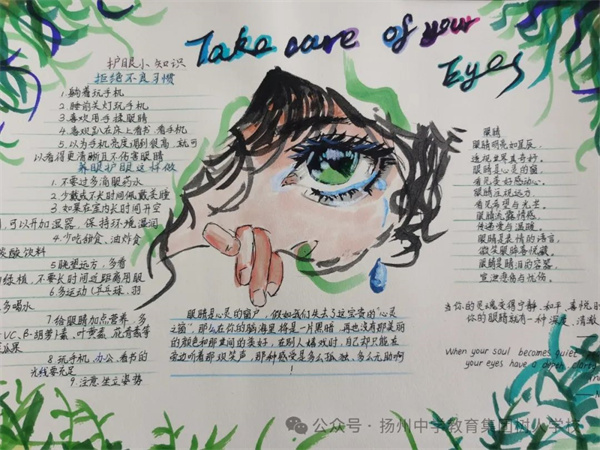 Take care of your
Eyes
护眼小知识
拒绝不良习惯
1. 躺着玩手机
2. 睡前关灯玩手机
3. 喜欢用手揉眼睛
4. 喜欢趴在床上看书 看手机
5. 以为手机亮度调到很高 就可
以看得更清晰且不伤害眼睛
养眼护眼这样做
1. 不要过多滴眼药水
2. 少戴或不长时间佩戴美瞳
3. 如果在室内长时间开空
可以开加湿器，保持环境湿润
4. 少吃甜食、油炸食
碳酸饮料
5. 眺望远方，多看
绿植，不要长时间近距离用眼
6. 多运动（乒乓球、羽
多喝水
7. 给眼睛加点营养，多
VC、β-胡萝卜素、叶黄素、花青素等
8. 玩手机、办公、看书的
光线要充足
9. 注意坐立姿势
眼睛是心灵的窗户，假如我们失去了这宝贵的“心灵
之窗”，那么在你的脑海里将是一片黑暗，再也没有那美丽
的颜色和那世间的美好，在别人嬉戏时，自己却只能在
旁边听着那欢笑声，那种感受是多么孤独、多么无助啊
！
眼睛
眼睛明亮如星辰，
眼睛是心灵的窗，
眼睛注视远方，
看见希望与光芒，
眼睛流露情感，
传递爱与温暖。
眼睛是表情的语言，
微笑眼眸喜悦藏。
眼睛是泪泊的容器，
宣泄悲痛与忧伤。
当你的灵魂变得宁静、和平、喜悦时
你的眼睛就有一种深度、清澈
When your soul becomes quiet
your eyes have a
公众号 · 扬州中学教育集团树人学校